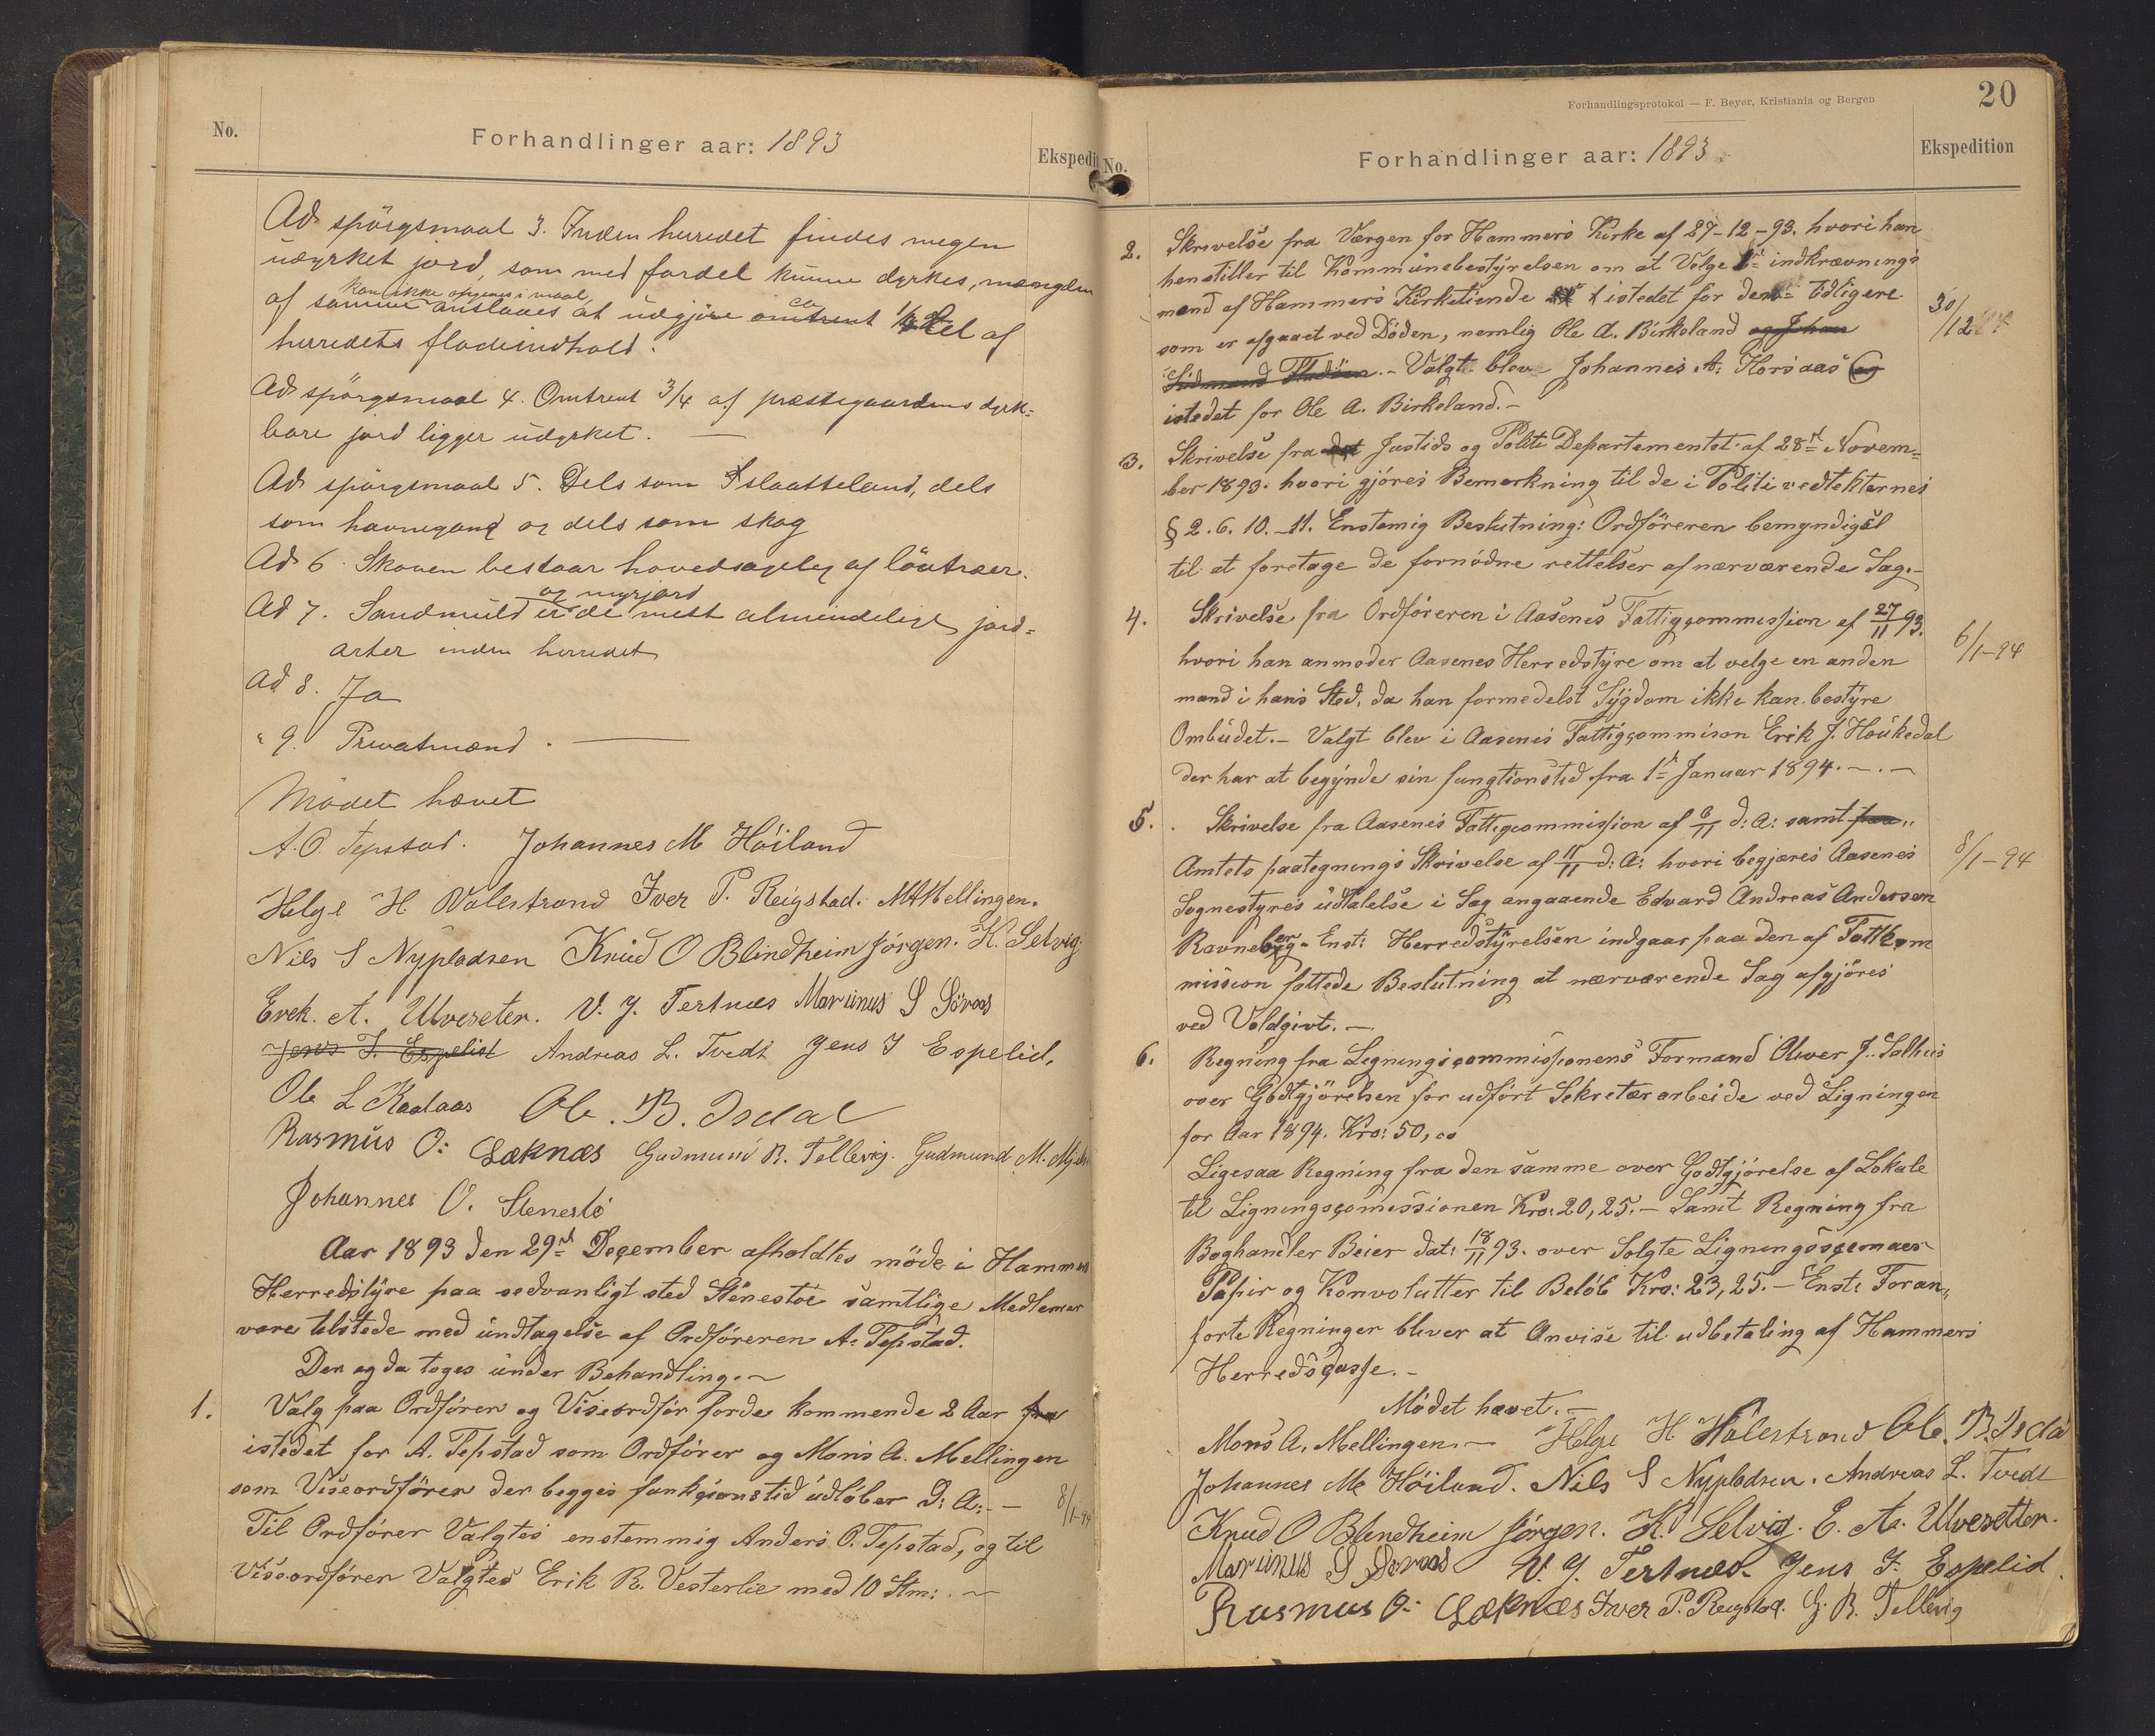 No.
Forhandlinger aar: 1893
Ekspedit
Ad spörgsmaal 3. Inden herredet findes megen
udyrket jord, som med fordel kunne dyrkes, mængden
kan ikke opgives i maal,
af samme anslaaes at udgjøre omtrent ca 1/4 del af
herredets fladeindhold.
Ad spörgsmaal 4. Omtrent 3/4 af præstegaardens dyrk-
bare jord ligger udyrket. —
Ad spörgsmaal 5. Dels som slaatteland, dels
som havnegang og dels som skog
Ad 6. Skoven bestaar hovedsagelig af löutræer.
og myrjord
Ad 7. Sandmuld er de mest almindelige jord-
arter inden herredet
Ad 8. Ja
" 9. Privatmænd. —
Mödet hævet
A. O. Tepstad. Johannes M Höiland
Helge H. Valestrand Iver P. Reigstad. M A Mellingen.
Nils S Nypladsen Knud O Blindheim Jörgen. K. Selvig
Erek. A. Ulveseter. V. J. Tertnæs Marinus S Söraas
Jens J. Espelid Andreas L. Tvedt Jens J Espelid,
Ole L Kaalaas Ole. B. Isdal
Rasmus O: Læknæs Gudmund R. Tellevig. Gudmund M.
Johannes O. Stenestö
Aar 1893 den 29de Deçember afholdtes möde i Hammers
Herredstyre paa sedvanligt sted Stenestöe samtlige Medlemer
vare tilstede med undtagelse af Ordföreren A. Tepstad.
Der og da toges under Behandling. —
1. Valg paa Ordförer og Viseordför forde kommende 2 Aar fra
istedet for A. Tepstad som Ordförer og Mons A. Mellingen
som Viseordförer der begges funkçionstid udlöber D: A: —
8/1-94
Til Ordförer Valgtes enstemmig Anders O. Tepstad, og til
Viseordförer Valgtes Erik R. Vesterlie med 10 Stm: . —
Forhandlingsprotokol — F. Beyer, Kristiania og Bergen
20
No.
Forhandlinger aar: 1893
Ekspedition
2. Skrivelse fra Værgen for Hammers Kirke af 27-12-93. hvori han
henstiller til Kommunebestyrelsen om at Velge 1 indkrævnings
mand af Hammers Kirketiende istedet for den tidligere
som er afgaaet ved Döden, nemlig Ole A. Birkeland og Johan
30/12
Valgt blev Johannes A. Horsaas og
istedet for Ole A. Birkeland. —
3. Skrivelse fra det Justids og Politi Departementet af 28de Novem-
ber 1893. hvori gjöres Bemerkning til de i Politivedtekternes
§ 2. 6. 10. - 11. Enstemig Beslutning: Ordföreren bemyndiges
til at foretage de fornödne rettelser af nærværende Sag. —
4. Skrivelse fra Ordföreren i Aasenes Fattigçommission af 27/11 93.
6/1-94
hvori han anmoder Aasenes Herredstyre om at velge en anden
mand i hans Sted, da han formedelst Sygdom ikke kan bestyre
Ombudet. — Valgt blev i Aasenes Fattigçommison Erik J. Houkedal
der har at begynde sin fungtionstid fra 1ste Januar 1894. — . —
5. Skrivelse fra Aasenes Fattigcommission af 6/11 d: A: samt fra
8/1-94
Amtets paategnings Skrivelse af 11/11 d: A: hvori begjæres Aasenes
Sognestyres udtalelse i Sag angaaende Edvard Andreas Andersen
Ravneberg. Enst: Herredstyrelsen indgaar paa den af Fattigkom
mission fattede Beslutning at nærværende Sag afgjöres
ved Voldgivt. —
6. Regning fra Ligningsçommissionens Formand Oliver J. Salhus
over Godtgjörelsen for udfört Sekretærarbeide ved Ligningen
for Aar 1894. Kro: 50,00
Ligesaa Regning fra den samme over Godtgjörelse af Lokale
til Ligningsçomissionen Kro: 20,25. — Samt Regning fra
Boghandler Beier dat: 18/11 93. over Solgte Ligningssçemaer
Papir og Konvolutter til Belöb Kro: 23,25. — Enst: Foran,,
förte Regninger bliver at Anvise til udbetaling af Hammers
Herredsçasse. —
Mödet hævet. —
Mons A. Mellingen. — Helge H. Valestrand Ole. B. Isdal
Johannes M Höiland. Nils S Nypladsen. Andreas L. Tvedt
Knud O Blindheim Jörgen. K. Selvig. E. A. Ulvesetter.
Marinus S Söraas V. J. Tertnæs. Jens J. Espelid.
Rasmus O: Læknæs Iver P. Reigstad. G. R. Tellevig